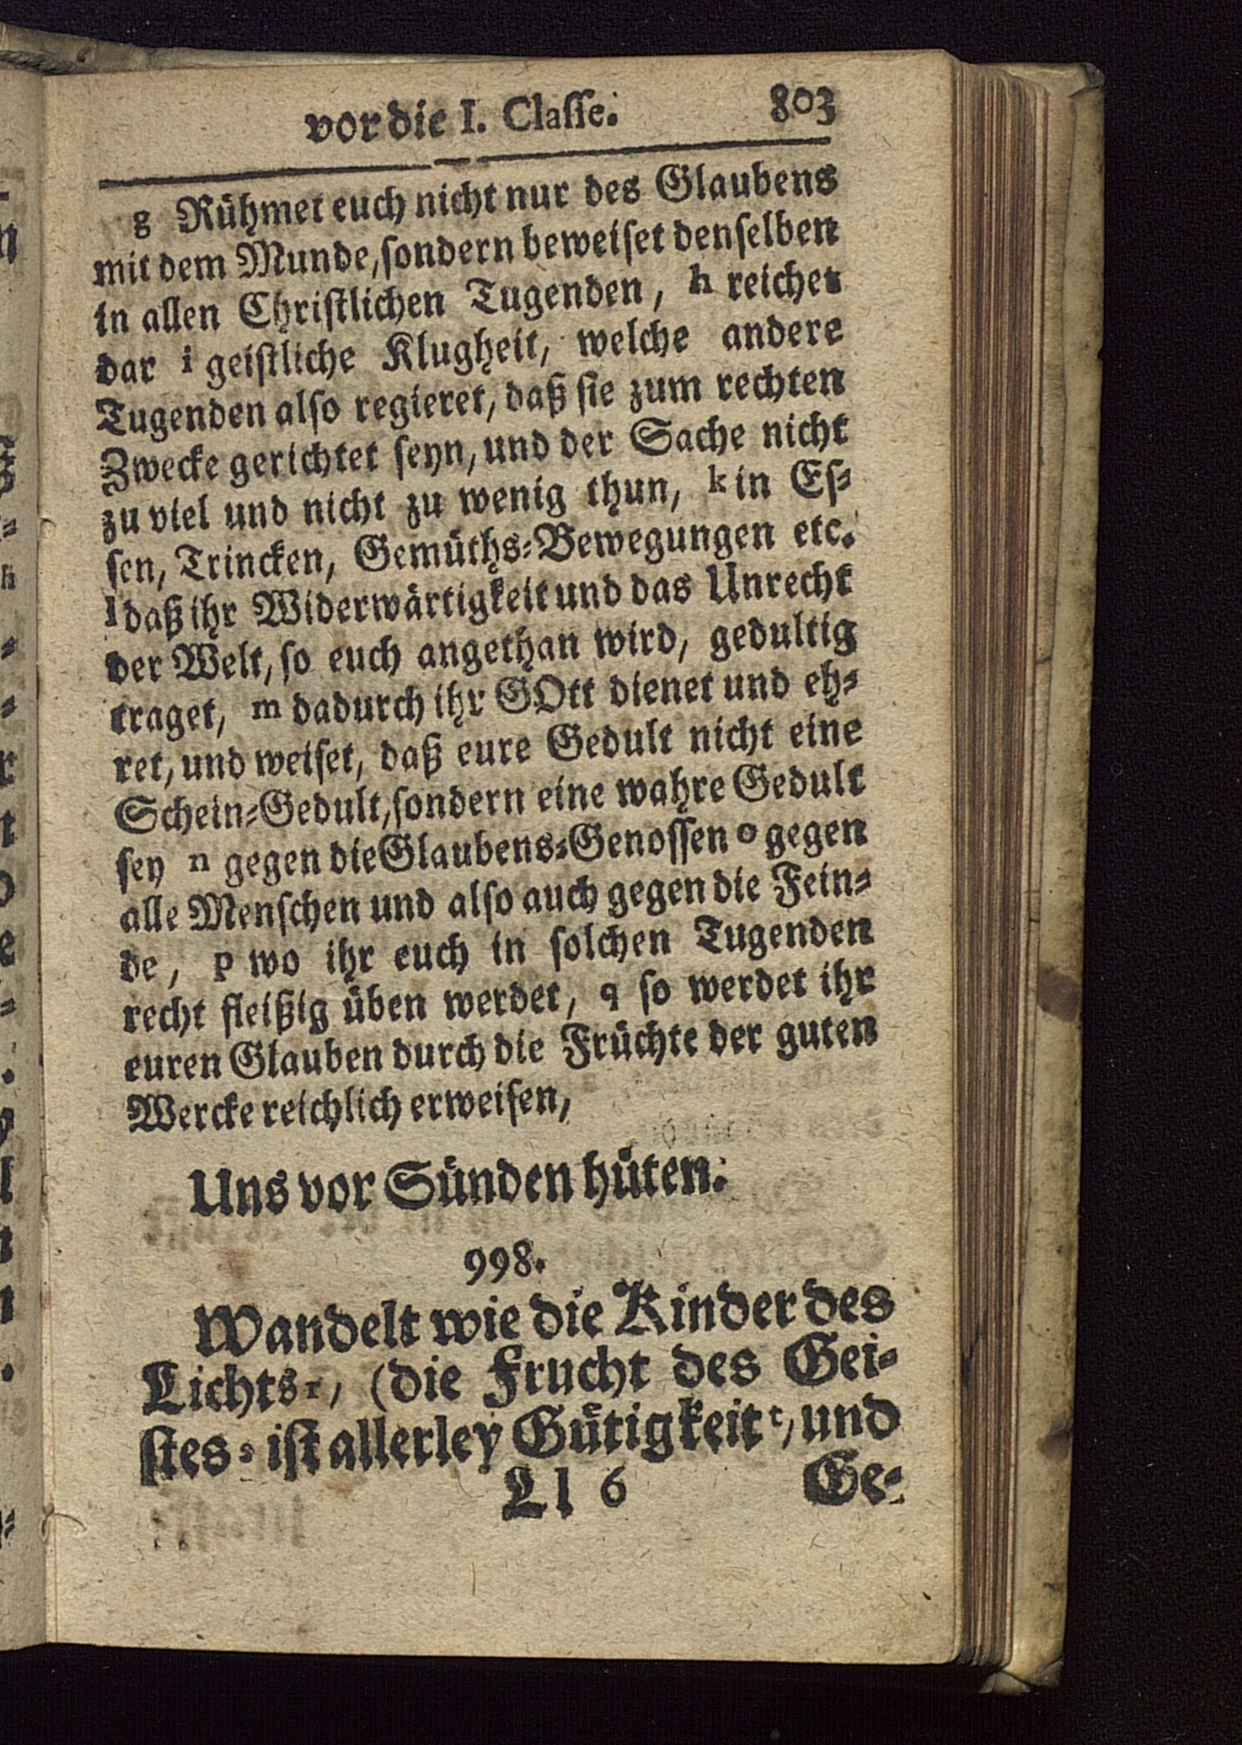 vor die I. Classe. 803
g Rühmet euch nicht nur des Glaubens
mit dem Munde, sondern beweiset denselben
in allen Christlichen Tugenden, h reichet
dar i geistliche Klugheit, welche andere
Tugenden also regieret, daß sie zum rechten
Zwecke gerichtet seyn, und der Sache nicht
zu viel und nicht zu wenig thun, k in Es-
sen, Trincken, Gemüths-Bewegungen etc.
l daß ihr Widerwärtigkeit und das Unrecht
der Welt, so euch angethan wird, gedultig
traget, m dadurch ihr GOtt dienet und eh-
ret, und weiset, daß eure Gedult nicht eine
Schein-Gedult, sondern eine wahre Gedult
sey n gegen die Glaubens-Genossen o gegen
alle Menschen und also auch gegen die Fein-
de, p wo ihr euch in solchen Tugenden
recht fleißig üben werdet, q so werdet ihr
euren Glauben durch die Früchte der guten
Wercke reichlich erweisen,
Uns vor Sünden hüten.
998.
Wandelt wie die Kinder des
Lichts r, (die Frucht des Gei-
stes s ist allerley Gütigkeit t, und
Ll 6 Ge-